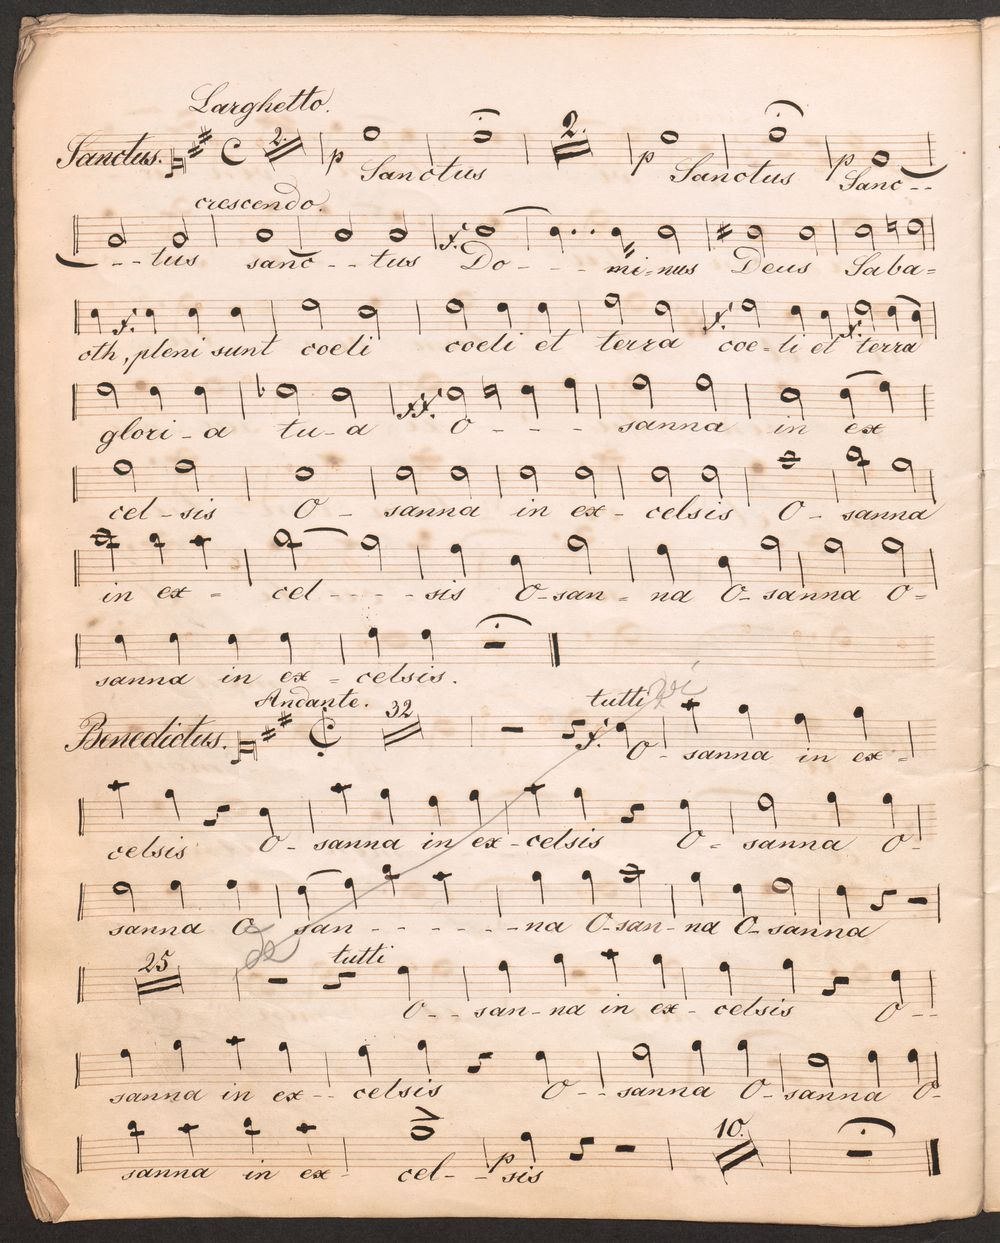 Larghetto.
Sanctus. 2. p Sanctus 2. p Sanctus p Sanc--
crescendo.
--tus sanc--tus f. Do---mi-nus Deus Saba=
oth, f. pleni sunt coeli coeli et terra f. coe-li et f. terra
glori-a tu-a ff. O---sanna in ex
cel-sis O-sanna in ex-celsis O-sanna
in ex=cel----sis O-san=na O-sanna O=
sanna in ex=celsis.
Andante. 32 tutti
Benedictus. f. O-sanna in ex=
celsis O-sanna in ex-celsis O=sanna O-
sanna O san------na O-san-na O-sanna
de
25 tutti
O--san-na in ex-celsis O--
sanna in ex--celsis O--sanna O-sanna O-
10.
sanna in ex-cel--p sis